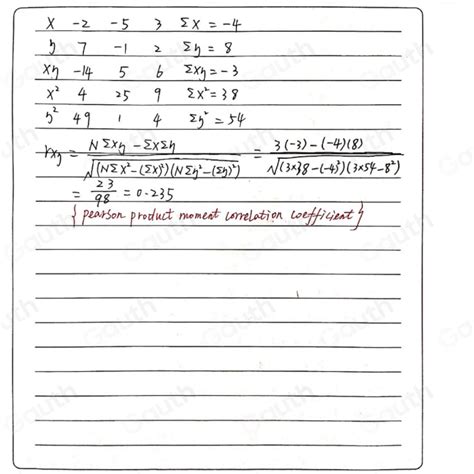 x -2 -5 3 Σx = -4
y 7 -1 2 Σy = 8
xy -14 5 6 Σxy = -3
x² 4 25 9 Σx² = 38
y² 49 1 4 Σy² = 54
rxy = NΣxy - ΣxΣy / √((NΣx² - (Σx)²)(NΣy² - (Σy)²)) = 3(-3) - (-4)(8) / √((3×38 - (-4)²)(3×54 - 8²)
= 23/98 = 0.235
{ pearson product moment correlation coefficient }
Gauth